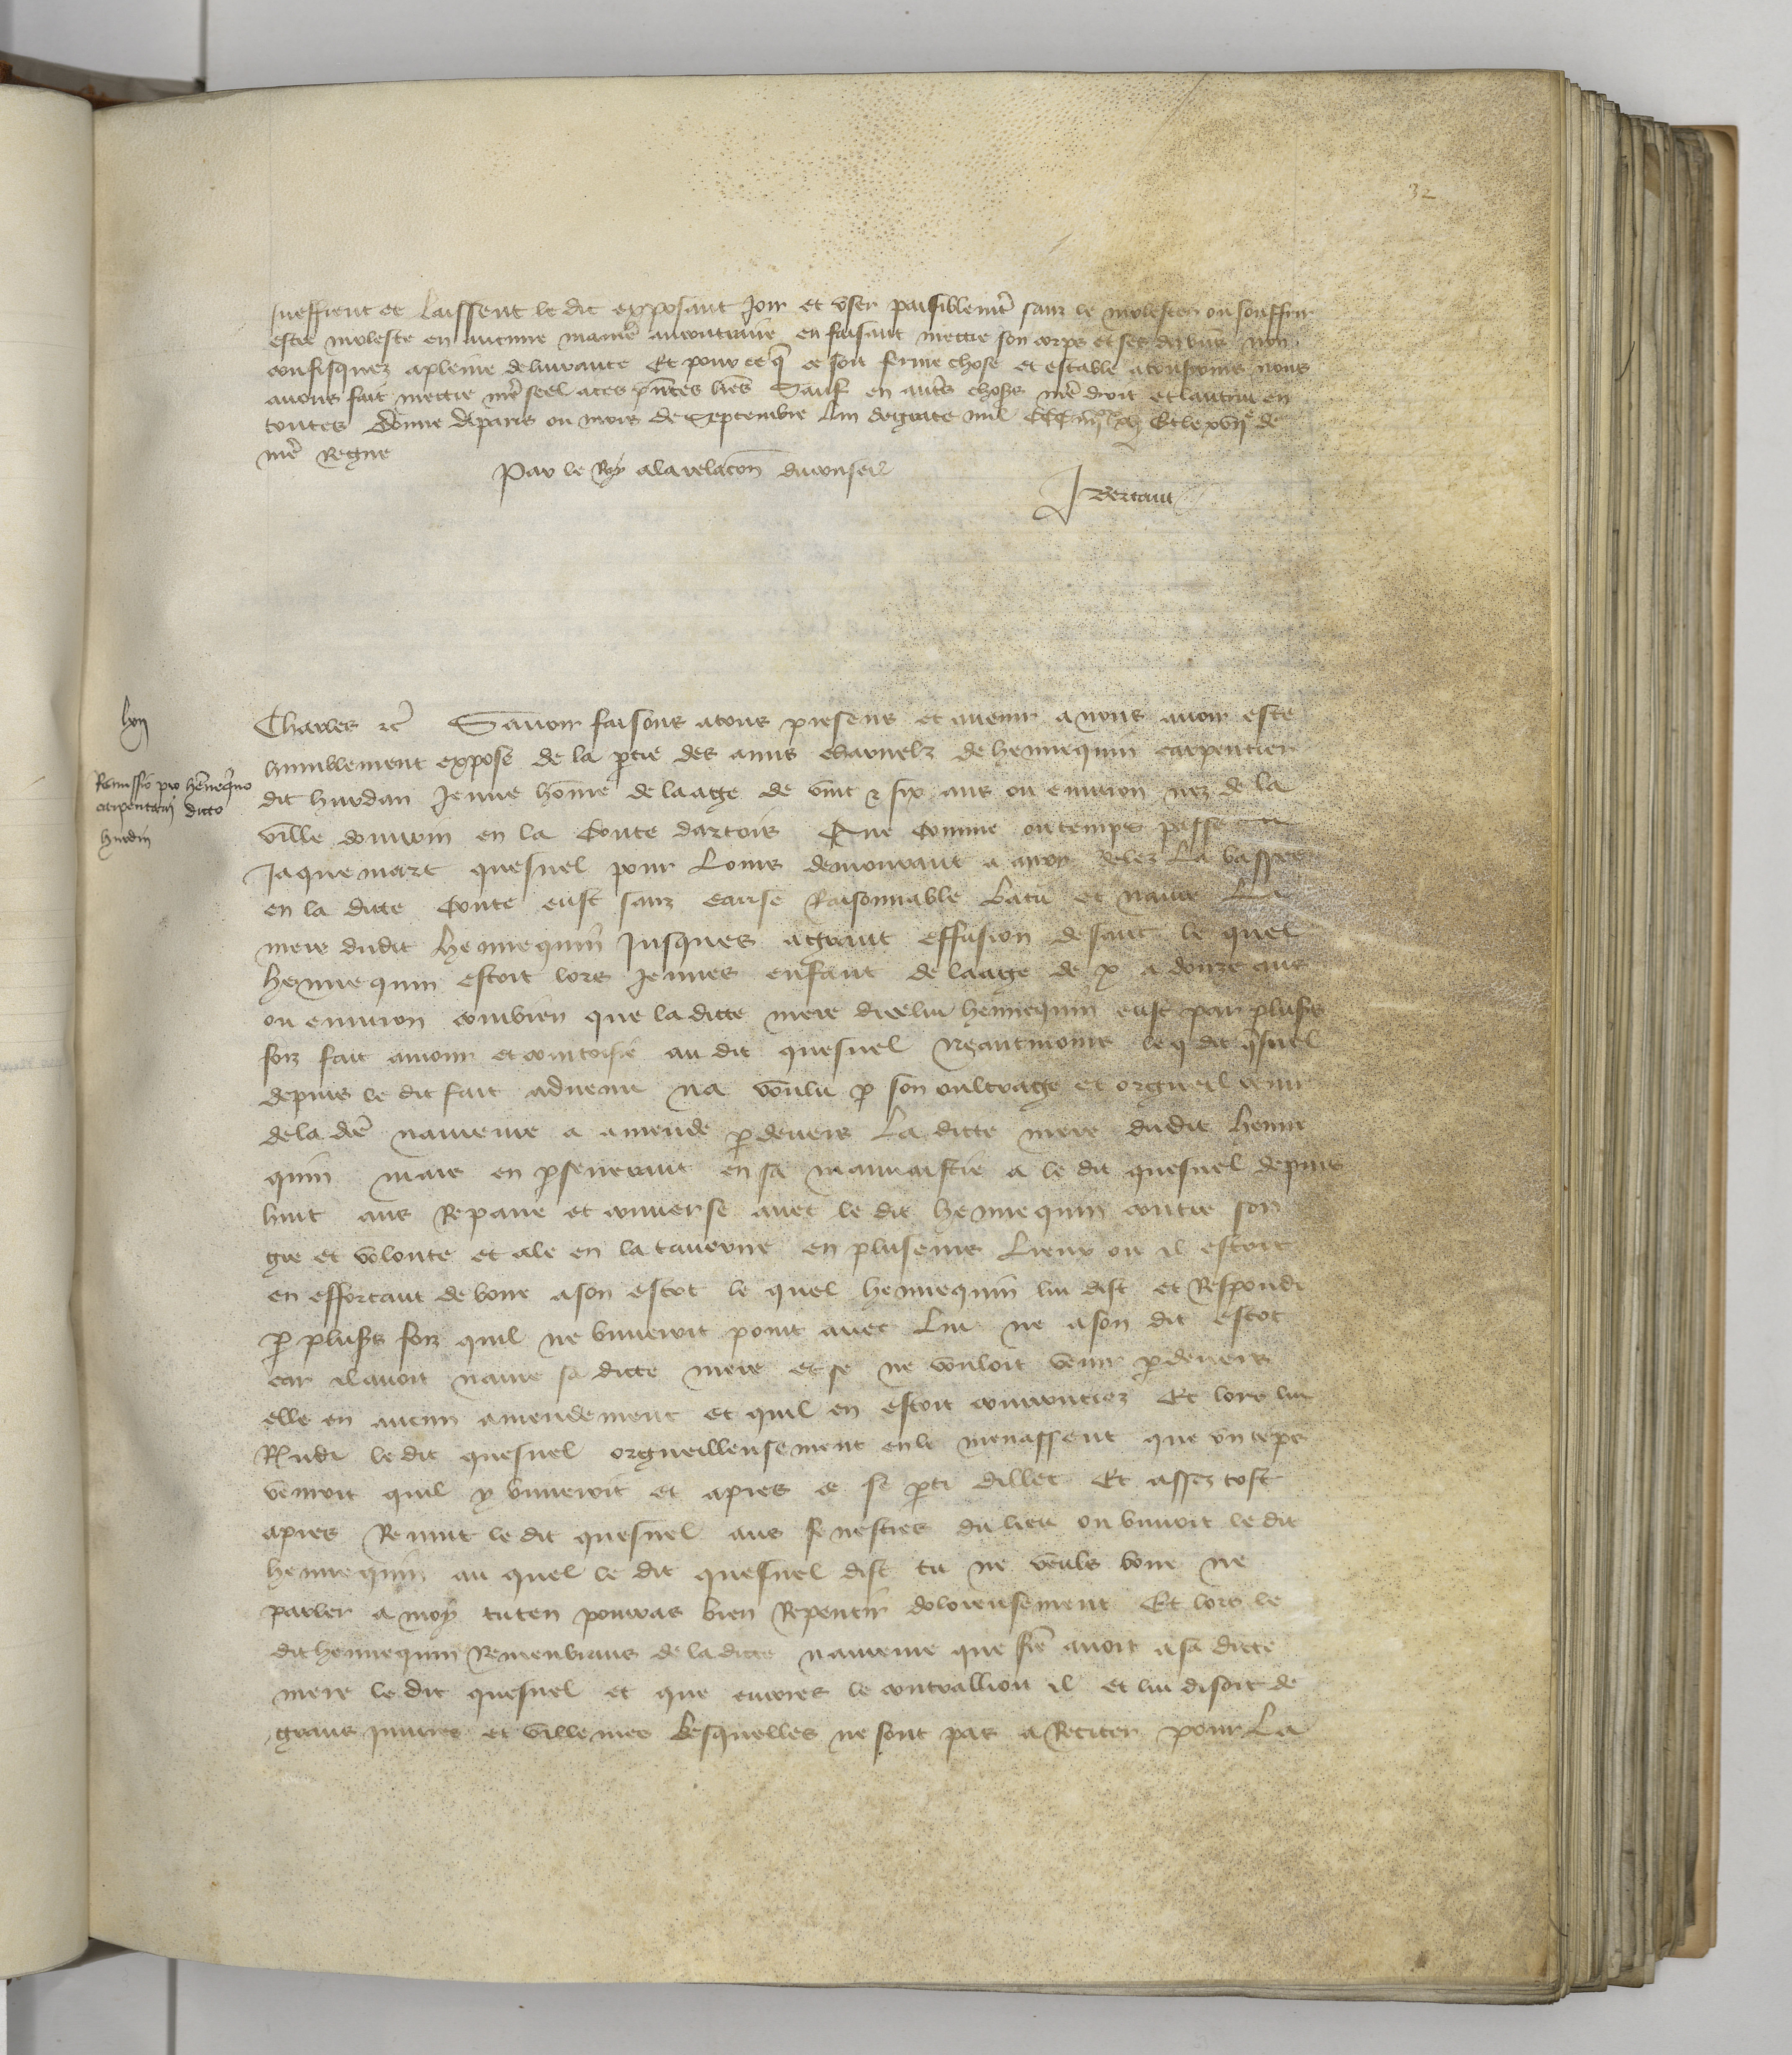 32
sueffrent et laissent le dit exposant joir et user paisiblemt sanz le molester ou souffrir
estre moleste en aucune maniere au contraire en faisant mettre son corps et ses diz biens non
confisquez a pleine delivrance Et pour ce q ce soit ferme chose et estable a tousjours nous
avons fait mettre nre seel a ces pntes lres Sauf en autres choses nre droit et lautrui en
toutes Donne a paris ou mois de Septembre lan de grace mil CCC iiiixx xvij Et le xvije de
nre Regne
Par le Roy a la relacon du conseil
J Bertaut
lvij
Remissio pro henequino
carpentarij dicto
hurdin
Charles etc Savoir faisons a tous presens et avenir a nous avoir este
humblement expose de la ptie des amis charnelz de hennequin carpentier
dit hurdan Jeune homme de laage de vint et six ans ou environ nez de la
ville douvrin en la Conte dartois Que comme ou temps passe
Jaquemart quesnel pour Lors demourant a auvy delez La bassee
en la ditte Conte eust sanz cause Raisonnable batu et navre La
mere dudit hennequin Jusques a grant effusion de sanc le quel
hennequin estoit lors jeunes enfant de laage de x a douze ans
ou environ combien que la ditte mere dicelui hennequin eust par pluss
foiz fait amour et courtoisie au dit quesnel Neantmoins le q dit qsnel
depuis le dit fait advenu na voulu p son oultrage et orgueil venir
de la de navreure a amende pdevers La ditte mere dudit henne
quin mais en pseverant en sa mauvaistie a le dit quesnel depuis
huit ans Repaire et converse avec le dit hennequin contre son
gre et volonte et ale en la taverne en plusieurs Lieux ou il estoit
en efforcant de boire a son escot le quel hennequin lui dist et Respondi
p pluss foiz quil ne buveroit point avec Lui ne a son dit escot
car il avoit navre sa ditte mere et se ne vouloit venir pdevers
elle en aucun amendement et quil en estoit courouciez Et lors lui
Rndi le dit quesnel orgueilleusement en le menassent que un teps
venroit quil y buveroit et apres ce se pti dillec Et assez tost
apres Revint le dit quesnel aus fenestres du lieu ou buvoit le dit
hennequin au quel le dit quesnel dist tu ne veuls boire ne
parler a moy tu ten pourras bien Repentir doloreusement Et lors le
dit hennequin Remenbrans de la ditte navreure que fte avoit a sa ditte
mere le dit quesnel et que encores le contralioit il et lui disoit de
grans injures et villenies Lesquelles ne sont pas a Reciter pour La